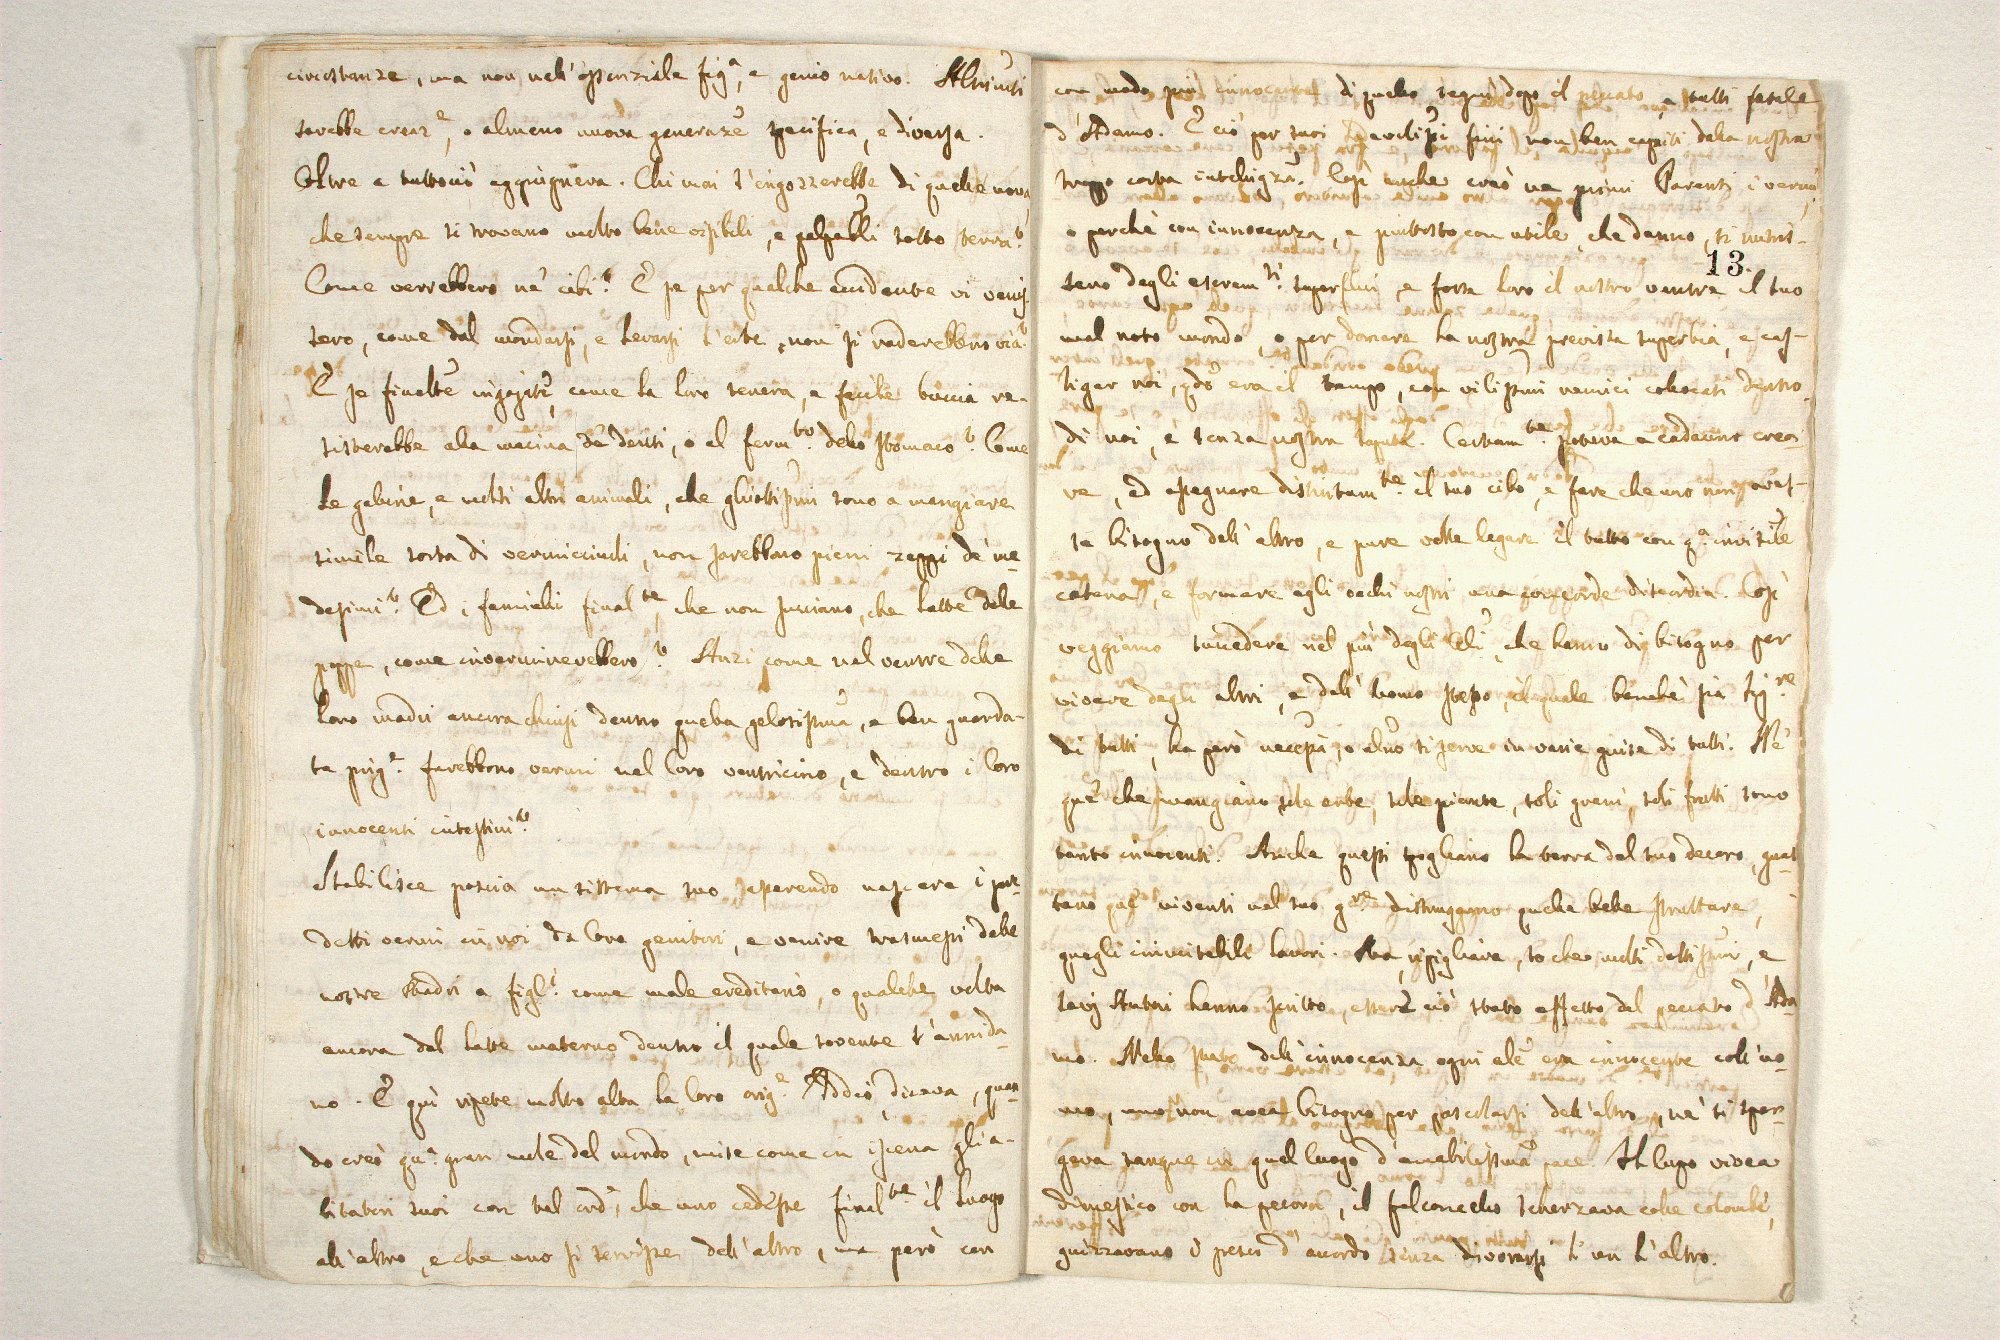 circostanze, ma non nell'essenziale fig.ᵃ, e genio nativo. Altrim̃ti
sarebbe crear.ᵉ, o almeno nuova generaz.ᵉ specifica, e diversa.
Oltre a tuttociò aggiugneva. Chi mai s'ingozzerebbe di quelle uova,
che sempre si trovano molto bene visibili, e palpabili sotto terra?
Come verrebbero ne' cibi? E se per qualche accidente vi venis-
sero, come dal mondarsi, e lavarsi l'erbe, non si vederebbono già?
E se finalm̃te ingojate, come la loro tenera, e facile buccia re-
sisterebbe alla macina de' denti, o al ferm.ᵗᵒ dello stomaco? Come
le galline, e molti altri animali, che ghiottissimi sono a mangiare
simile sorta di vermicciuoli, non sarebbono pieni zeppi de' me-
desimi? Ed i fanciulli final.ᵗᵉ, che non succiano, che latte dalle
poppe, come inverminerebbero? Anzi come nel ventre delle
loro madri ancora chiusi dentro quella gelosissima, e ben guarda-
ta prig.ᵉ farebbono vermi nel loro ventricino, e dentro i loro
innocenti intestini?
Stabilisce poscia un sistema suo asserendo nascere i pre-
detti vermi in noi da loro genitori, e venire trasmessi dalle
nostre Madri a figl.ⁱ come male ereditario, o qualche volta
ancora dal latte materno dentro il quale sovente s'annida-
no. E quì ripete molto alta la loro orig.ᵉ Iddio, diceva, quan-
do creò qu.ᵃ gran mole del mondo, mise come in iscena gli a-
bitatori suoi con tal ord.ᵉ, che uno cedesse final.ᵗᵉ il luogo
all'altro, e che uno si servisse dell'altro, ma però con
con modo più innocente di quello seguì dopo il peccato, a tutti fatale
d'Adamo. E ciò per suoi savissimi fini non ben capiti dalla nostra
troppo corta intelligẽza. Così anche creò ne primi Parenti i vermi,
o perchè con innocenza, e piuttosto con utile, che danno, si nutris-
13.
sero degli escrem.ᵗⁱ superflui, e fosse loro il nostro ventre il suo
mal noto mondo, o per domare la nostra prevista superbia, e cas-
tigar noi, qdo era il tempo, con vilissimi nemici collocati dentro
di noi, e senza nostra saputa. Certam.ᵗᵉ poteva a cadauno crea-
re, ed assegnare distintam.ᵗᵉ il suo cibo, e fare che uno non aves-
se bisogno dell'altro, e pure volle legare il tutto con q.ᵃ invisibile
catena, e formare agli occhi nostri una concorde discordia. Così
veggiamo succedere nel più degli ãli, che hanno di bisogno per
vivere degli altri, e dell'huomo stesso, il quale benchè sia sig.ʳᵉ
di tutti, ha però necessità, o alm̃o si serve in varie guise di tutti. Nè
que' che mangiano sole erbe, sole piante, soli grani, soli frutti sono
tanto innocenti. Anche questi spogliano la terra del suo decoro, guas-
tano que' viventi nel suo g.ʳᵉ distruggono quelle belle strutture,
quegli inimitabili lavori. Ma, ripigliava, so che molti dottissimi, e
savj Autori hanno scritto, essere ciò stato effetto del peccato d'Ada-
mo. Nello stato dell'innocenza ogni ale era innocente coll'uo-
mo, uno non avea bisogno per pascolarsi dell'altro, nè si spar-
geva sangue in quel luogo d'amabilissima pace. Il lupo vivea
dimestico con la pecora, il falconcello scherzava colle colombe,
guizzavano i pesci d'accordo senza divorarsi l'un l'altro.